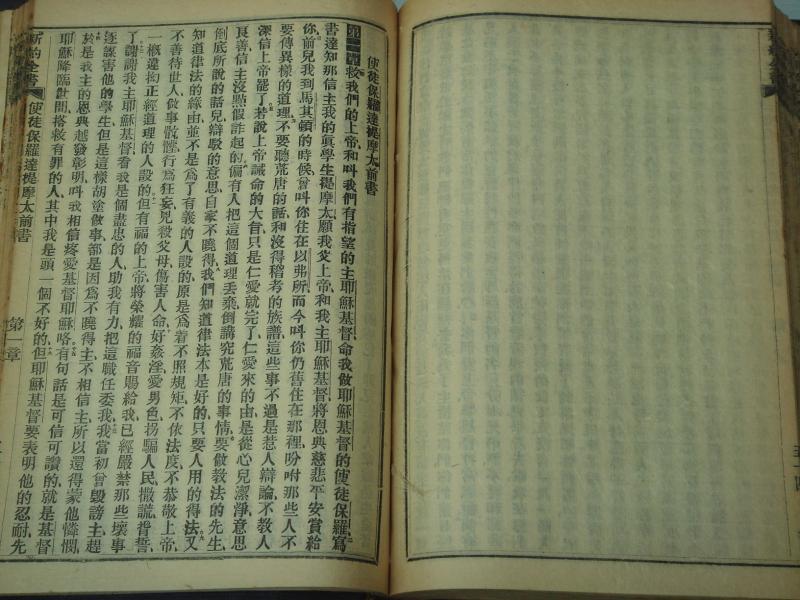 使徒保羅達提摩太前書
第一章 救我們的上帝和叫我們有指望的主耶穌基督命我做耶穌基督的使徒保羅寫
書達知那信主我的眞學生提摩太願我父上帝和我主耶穌基督將恩典慈悲平安賞給
你前兒我到馬其頓的時候曾叫你住在以弗所而今叫你仍舊住在那裡吩咐那些人不
要傳異樣的道理不要聽荒唐的話和沒得稽考的族譜這些事不過是惹人辯論不教人
深信上帝罷了若說上帝誡命的大旨只是仁愛就完了仁愛來的由是從心兒潔淨意思
良善信主沒點假詐起的偏有人把這個道理丟棄倒講究荒唐的事情要做教法的先生
倒底所說的話兒辯駁的意思自家不曉得我們知道律法本是好的只要人用的得法又
知道律法的緣由並不是爲了有義的人設的原是爲着不照規矩不依法度不恭敬上帝
不善待世人做事骯髒行爲狂妄見殺父母傷害人命好姦淫愛男色拐騙人民撒謊背誓
一概違拗正經道理的人設的但有福的上帝將榮耀的福音賜給我已經嚴禁那些壞事
了謝謝我主耶穌基督看我是個盡忠的人助我有力把這職任委我我當初曾毀謗主趕
逐謀害他的學生但是這樣胡塗做事都是因爲不曉得主不相信主所以還得蒙他憐憫
於是我主的恩典越發彰明叫我相信疼愛基督耶穌咯有句話是可信可讚的就是基督
耶穌降臨世間搭救有罪的人其中我是頭一個不好的但耶穌基督要表明他的忍耐先
新約全書 使徒保羅達提摩太前書 第一章